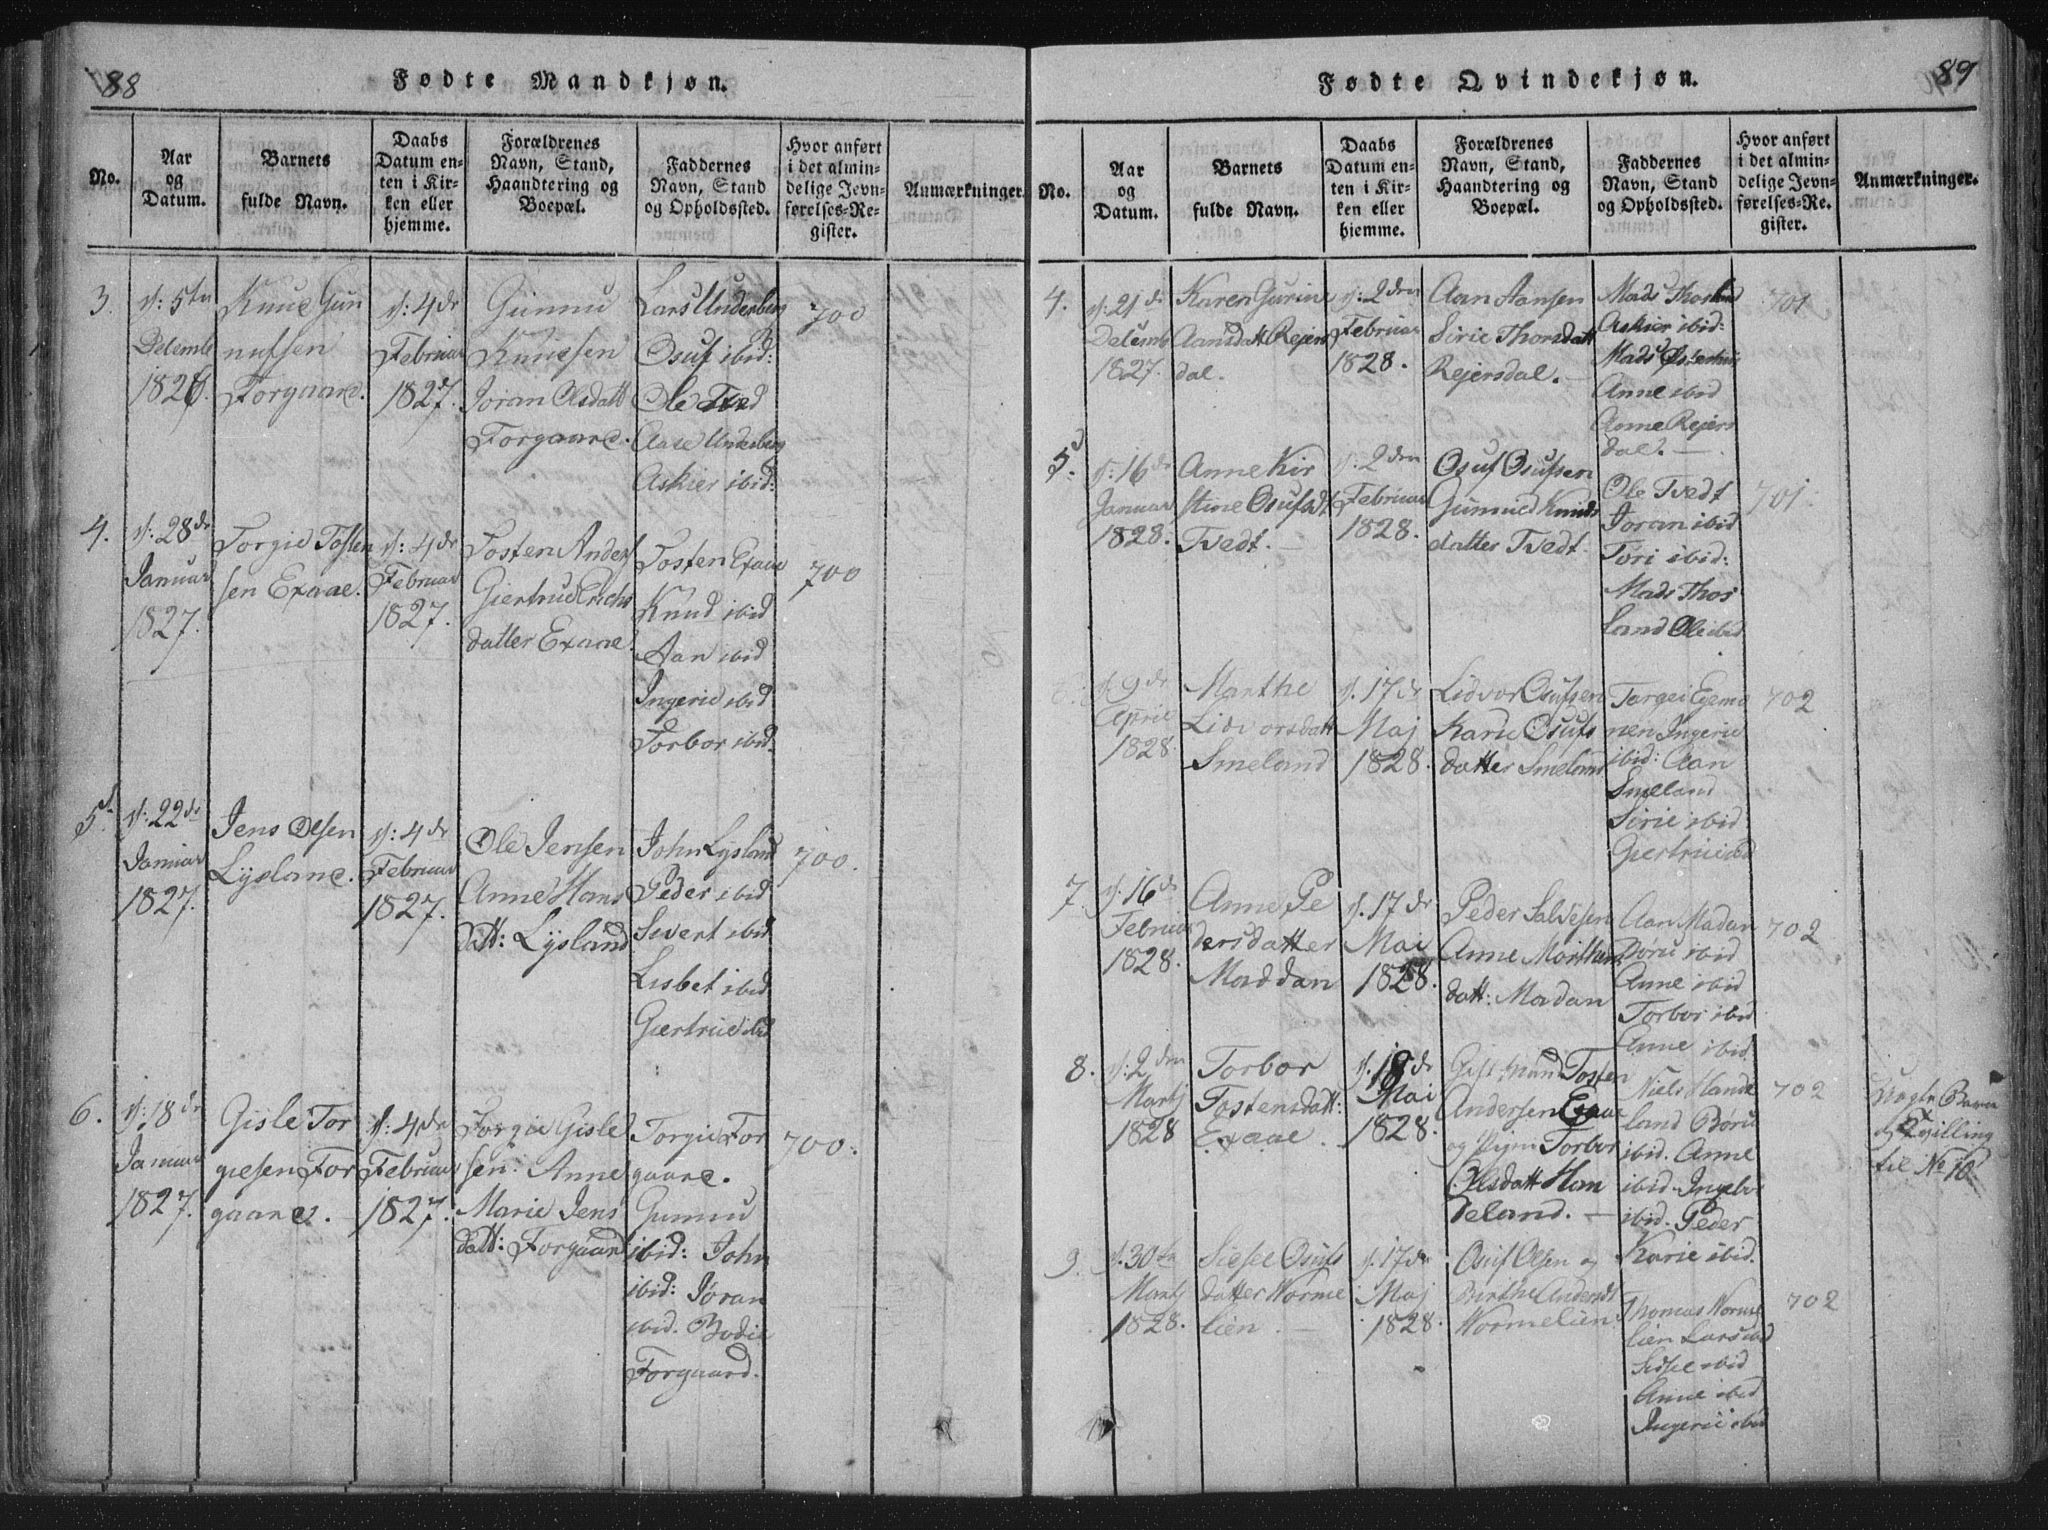 88
Fødte Mandkjøn.
No.
Aar
og
Datum.
Barnets
fulde Navn.
Daabs
Datum en-
ten i Kir-
ken eller
hjemme.
Forældrenes
Navn, Stand,
Haandtering og
Boepæl.
Faddernes
Navn, Stand
og Opholdssted.
Hvor anført
i det almin-
delige Jevn-
førelses-Re-
gister.
Anmærkninger.
3.
d: 5te
Decemb
1826.
Knud Gun
nufsen
Forgaard.
d: 4de
Februar
1827.
Gunnu
Knudsen
Joran Olsdatt
Forgaard.
Lars Underberg
Osuf ibid:
Ole Tved
Aase Underberg
Askier ibid:
700
4.
d: 28de
Januar
1827.
Torgie Tosten
sen Exaae.
d: 4de
Februar
1827.
Tosten Anders
Giertrud Erichs
datter Exaae.
Tosten Exaae
Knud ibid
Aan ibid
Ingerie ibid
Torbor ibid.
700
5.
d: 22de
Januar
1827.
Jens Olsen
Lysland.
d: 4de
Februar
1827.
Ole Jensen
Anne Hans
datt: Lysland
John Lysland
Peder ibid
Sivert ibid
Lisbet ibid
Giertrue ibid
700.
6.
d: 18de
Januar
1827.
Gisle Tor
giesen For
gaard.
d: 4de
Februar
1827.
Torgie Gisle
sen. Anne
Marie Jens
datt: Forgaard
Torgie For
gaard.
Gunnu
ibid: John
ibid: Jøran
ibid. Bodil
Forgaard.
700.
89
Fødte Qvindekjøn.
No.
Aar
og
Datum.
Barnets
fulde Navn.
Daabs
Datum en-
ten i Kir-
ken eller
hjemme.
Forældrenes
Navn, Stand,
Haandtering og
Boepæl.
Faddernes
Navn, Stand
og Opholdssted.
Hvor anført
i det almin-
delige Jevn-
førelses-Re-
gister.
Anmærkninger.
4.
d: 21de
Decemb
1827.
Karen Gurine
Aansdatt Rejers
dal.
d: 2den
Februar
1828.
Aan Aansen
Sirie Thorsdatt
Rejersdal.
Mads Thosland
Askier ibid:
Mads
Anne ibid
Anne Rejers
dal.
701
5.
d: 16de
Januar
1828.
Anne Kir
stine Osufsdt
Tvedt.
d: 2den
Februar
1828.
Osuf Osufsen
Gunnuld Knuds
datter Tvedt.
Ole Tvedt
Joran ibid
Tori ibid:
Mads Thos
land Ole ibid
701
6.
d: 9de
April
1828.
Marthe
Lidvorsdatt
Smeland
d. 17de
Maj
1828.
Lidvor Osufsen
Karie Osufs
datter Smeland
Targei Egemo
nen Ingerie
ibid: Aan
Smeland
Sirie ibid
Giertrue ibid
702
7.
d. 16de
Februar
1828.
Anne Pe
dersdatter
Maddan
d. 17de
Maj
1828.
Peder Salvesen
Anne Morthens
datt: Madan
Aan Madan
Børu ibid
Anne ibid
Torbor ibid
Anne ibid.
702
8.
d: 2den
Martj
1828
Torbor
Tostensdatt:
Exaae.
d. 18de
Maj
1828.
Gift Mand Tosten
Andersen Exaae
og Pigen Torbor
Olsdatt Han
deland.
Niels Hande
land Børu
ibid. Anne
ibid. Ingebor
ibid. Peder
Karie ibid.
702
Uægte Barn
og Tvilling
til No 10
9.
d. 30te
Martj
1828.
Sidsel Osufs
datter Worme
lien.
d. 17de
Maj
1828.
Osuf Olsen og
Birthe Andersdt
Wormelien.
Thomas Worme
lien Lars ibid
Sidsel ibid
Anne ibid
Ingerie ibid
702